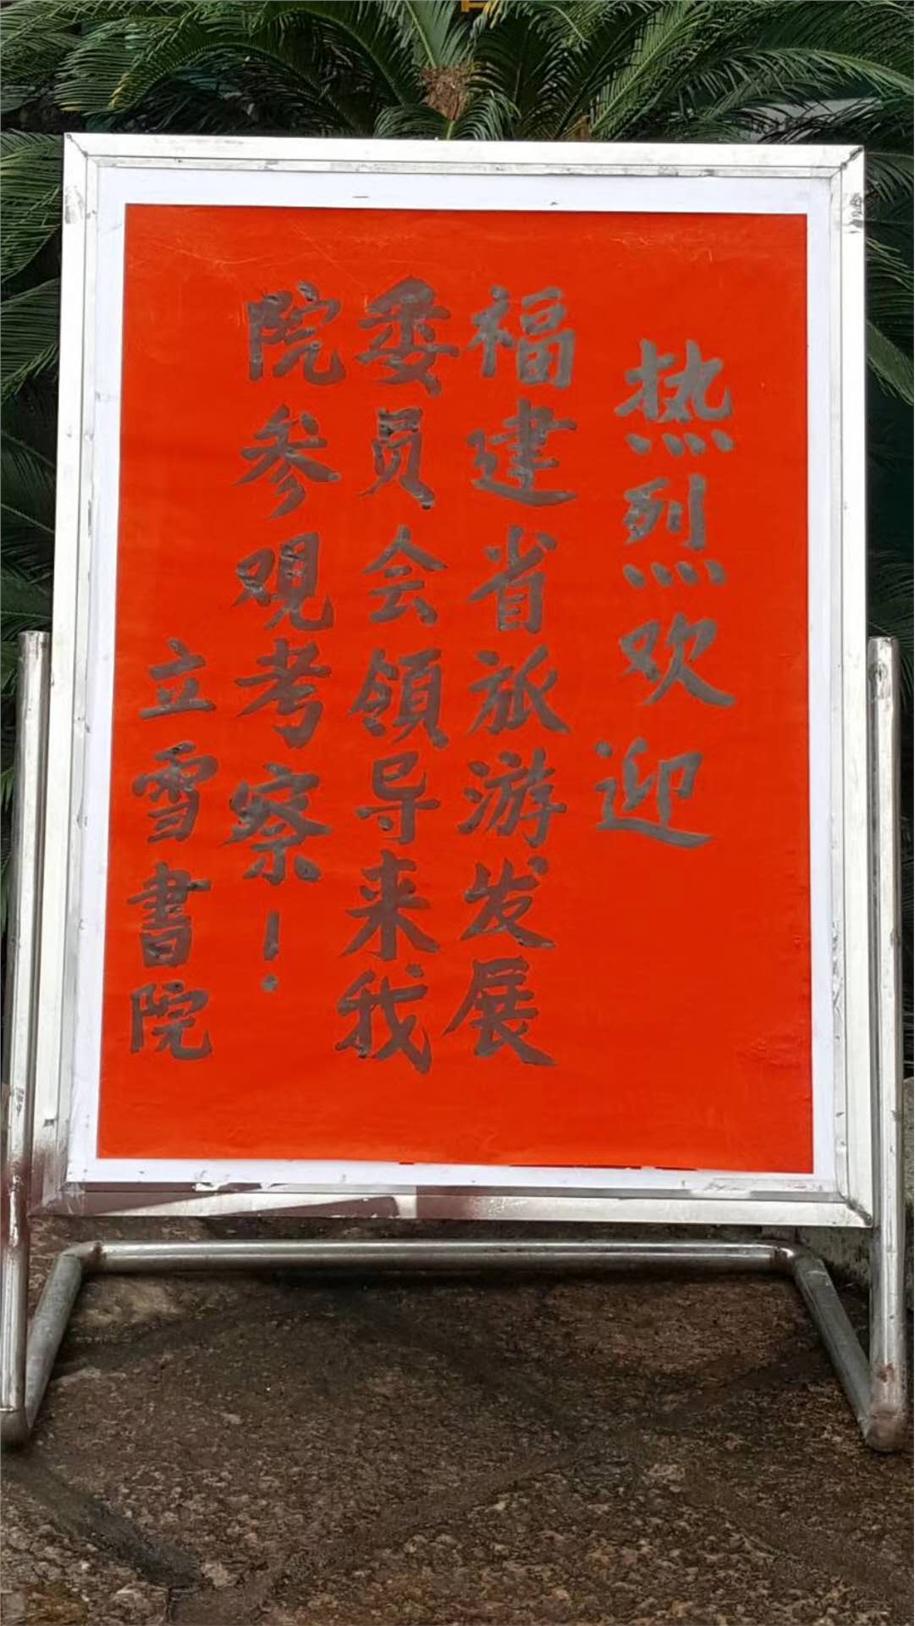 热烈欢迎
福建省旅游发展
委员会領导来我
院参观考察！
立雪書院